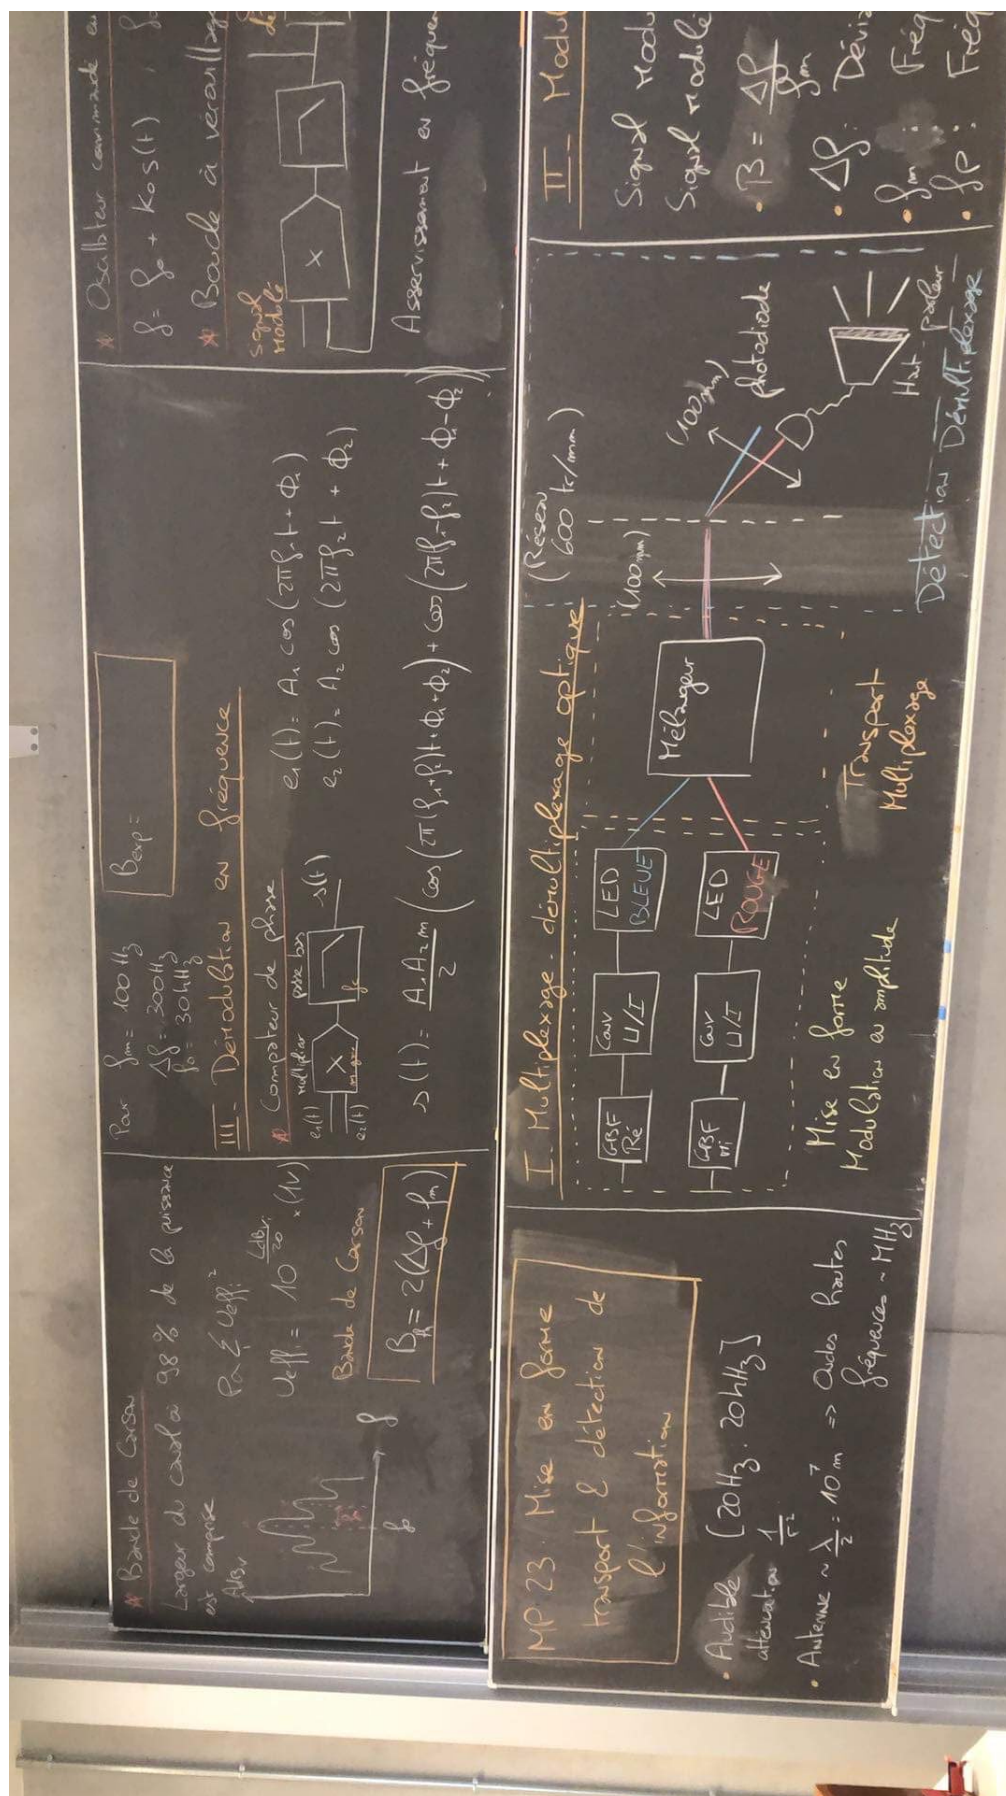 MP 23 : Mise en forme
transport & détection de
l'information
• Audible [20Hz - 20kHz]
atténuation 1/r²
• Antenne ~ λ/2 = 10⁷ m => Ondes hautes
fréquences ~ MHz
I - Multiplexage - démultiplexage optique
GBF
Ré
Conv
U/I
LED
BLEUE
GBF
Mi
Conv
U/I
LED
ROUGE
Mise en forme
Modulation en amplitude
Mélangeur
Transport
Multiplexage
(100mm)
(Réseau
600 tr/mm)
(100mm)
photodiode
Haut-parleur
Détection Démultiplexage
II - Modu
Signal modu
Signal modulé
• β = Δf/fm
• Δf : Dévia
• fm : Fréq
• fp : Fréq
* Bande de Carson
Largeur du canal où 98 % de la puissance
est comprise
AdBV
f0
f
P α Σ Ueffi²
Ueffi = 10^(LdBVi/20) × (1V)
Bande de Carson
B = 2(Δf + fm)
Pour fm = 100Hz
Δf = 300Hz
f0 = 30kHz
Bexp =
III - Démodulation en fréquence
* Comparateur de phase
multiplieur passe bas
e1(t)
e2(t)
X
fc
s(t)
e1(t) = A1 cos(2πf1t + Φ1)
e2(t) = A2 cos(2πf2t + Φ2)
s(t) = A1A2m/2 (cos(2π(f1+f2)t + Φ1+Φ2) + cos(2π(f1-f2)t + Φ1-Φ2))
* Oscillateur commandé en
f = f0 + k0s(t) , f0
* Boucle à verrouillage
Signal
modulé
X
Asservissement en fréquen